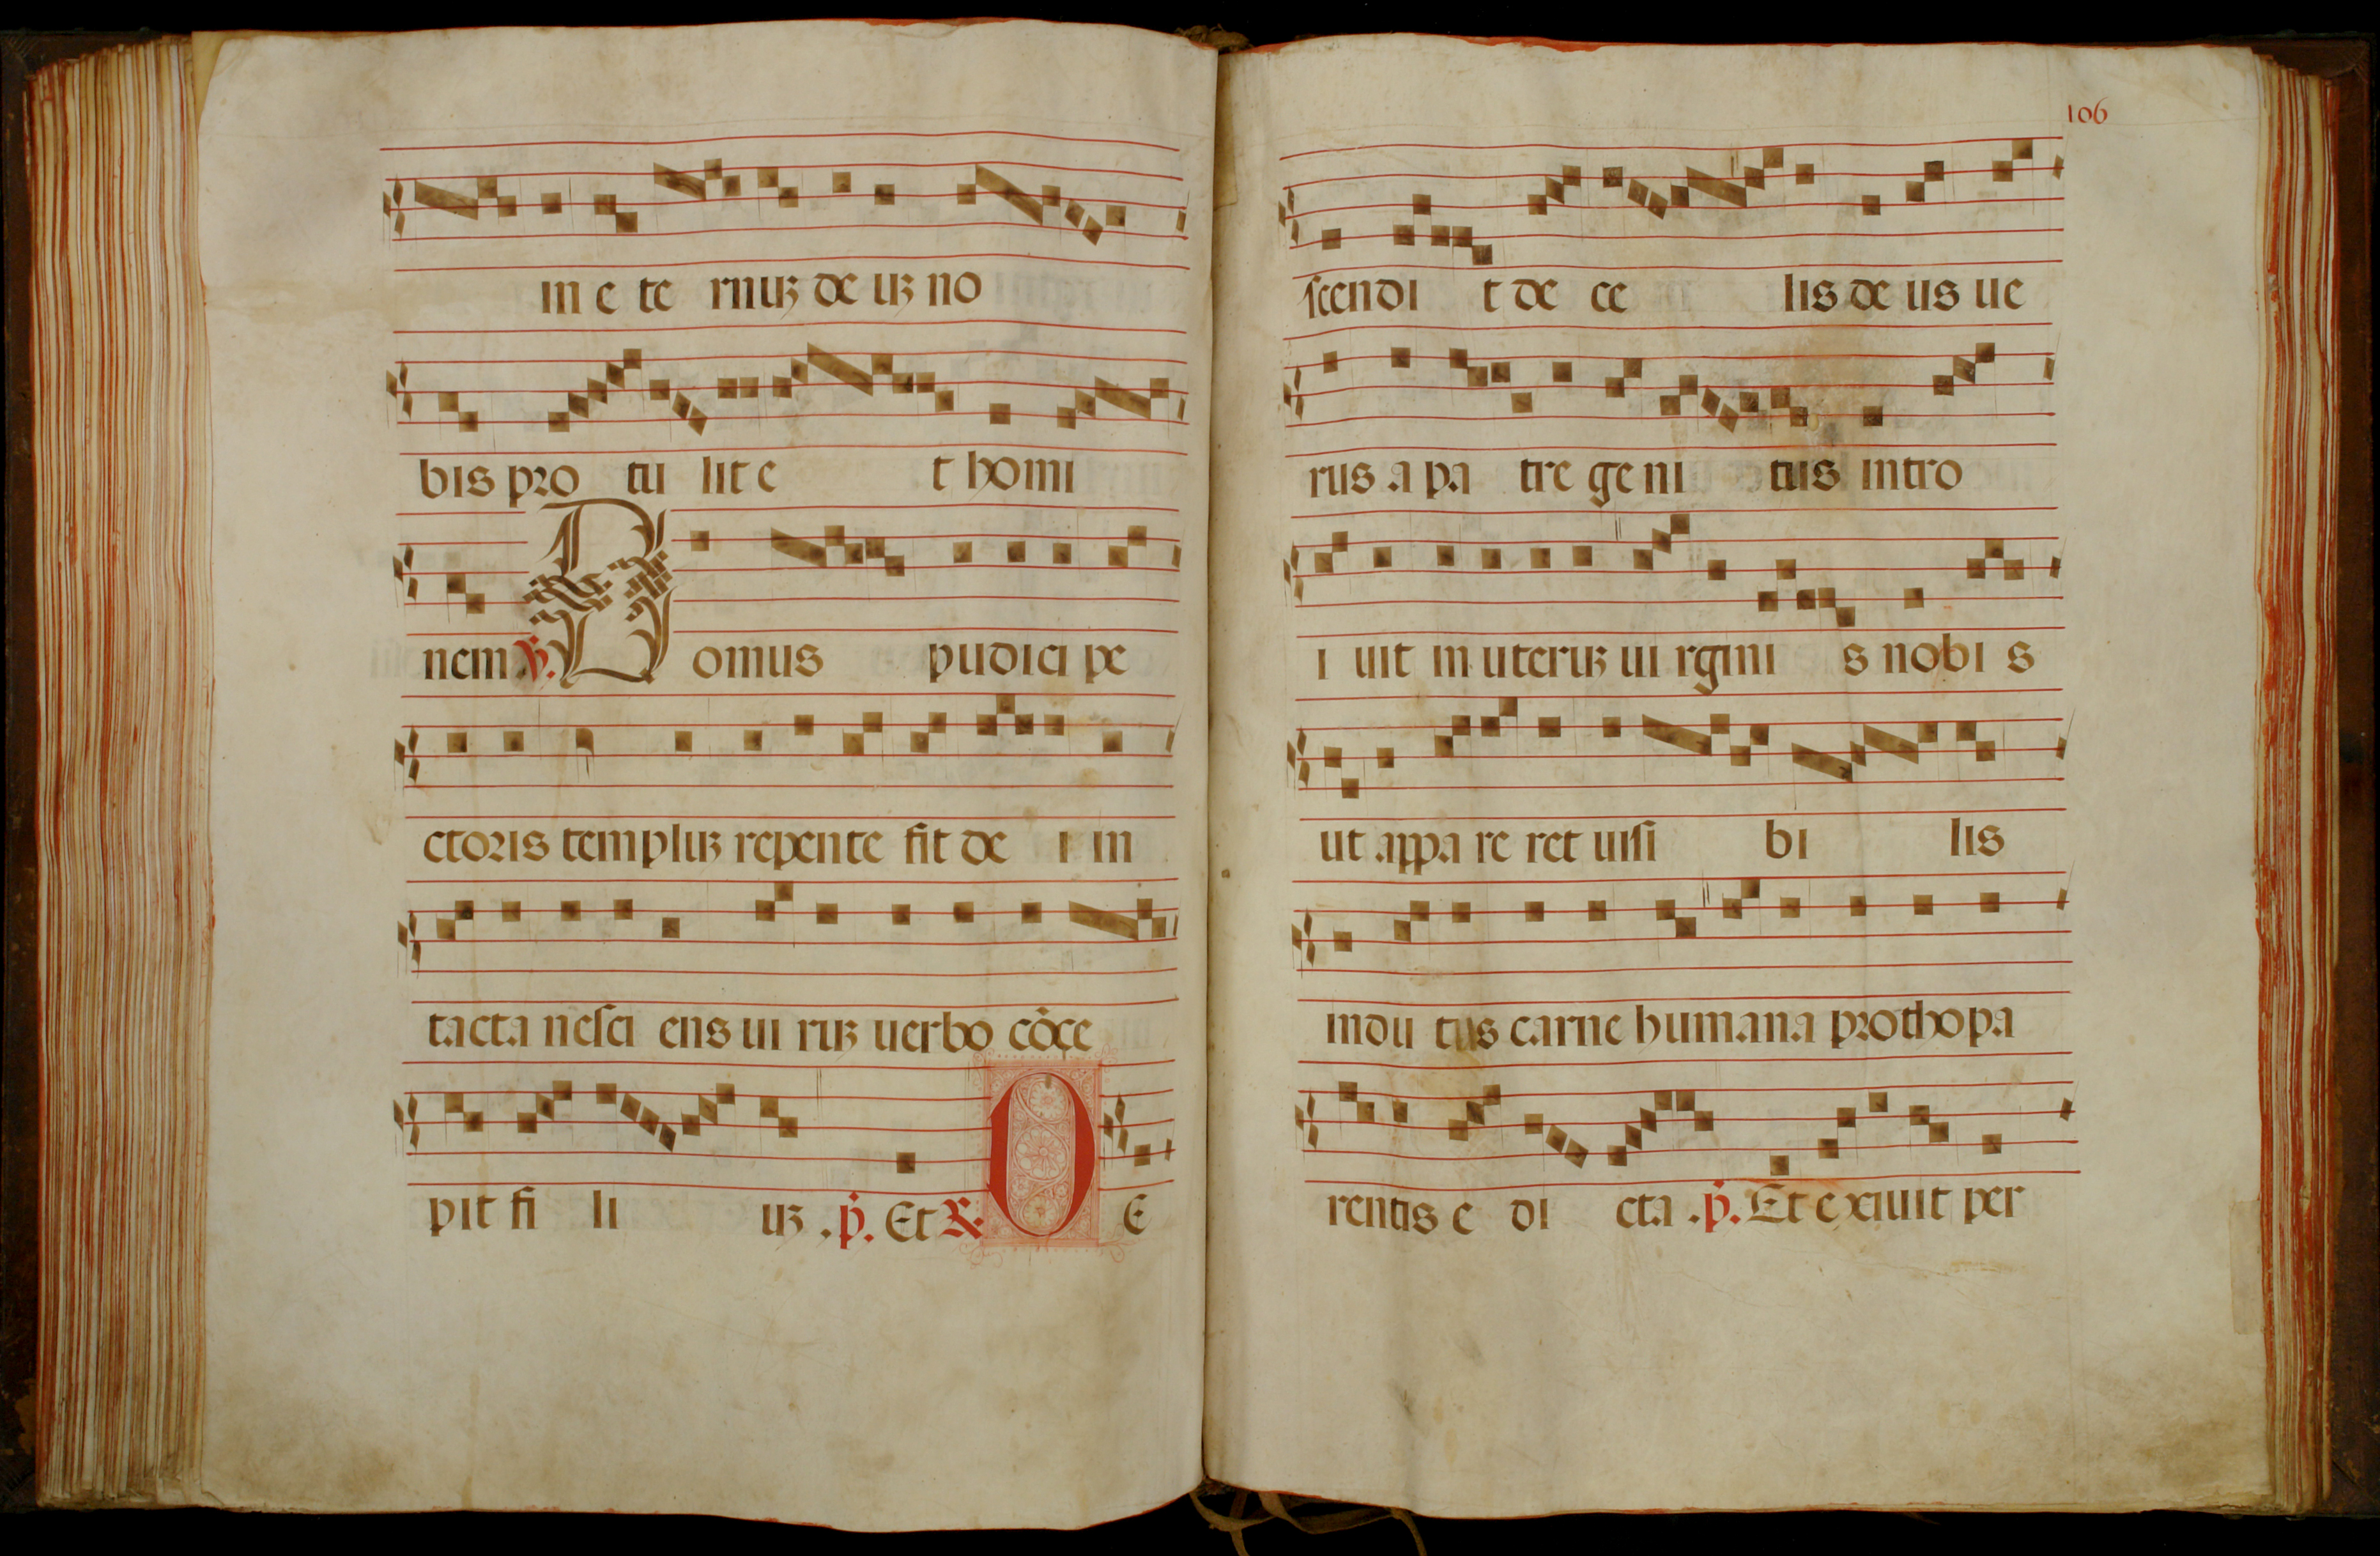 in e te rnuꝫ de uꝫ no
bis pro tu lit e t homi
nem ℣. Domus pudici pe
ctoris templuꝫ repente fit de i in
tacta nesci ens ui ruꝫ uerbo cōce
pit fi li uꝫ . p̃. Et ℟. D E
106
scendi t de ce lis de us ue
rus a pa tre ge ni tus intro
i uit in uteruꝫ ui rgini s nobi s
ut appa re ret uisi bi lis
indu tus carne humana prothopa
rentis e di cta . p̃. Et exiuit per